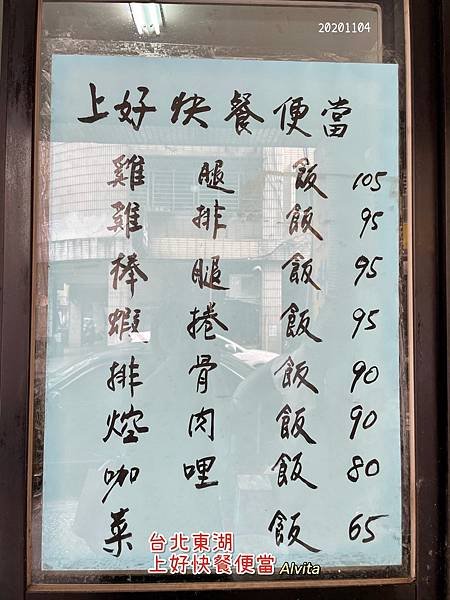 20201104
上好快餐便當
雞腿飯 105
雞排飯 95
棒腿飯 95
蝦捲飯 95
排骨飯 90
焢肉飯 90
咖哩飯 80
菜飯 65
台北東湖
上好快餐便當 Alvita